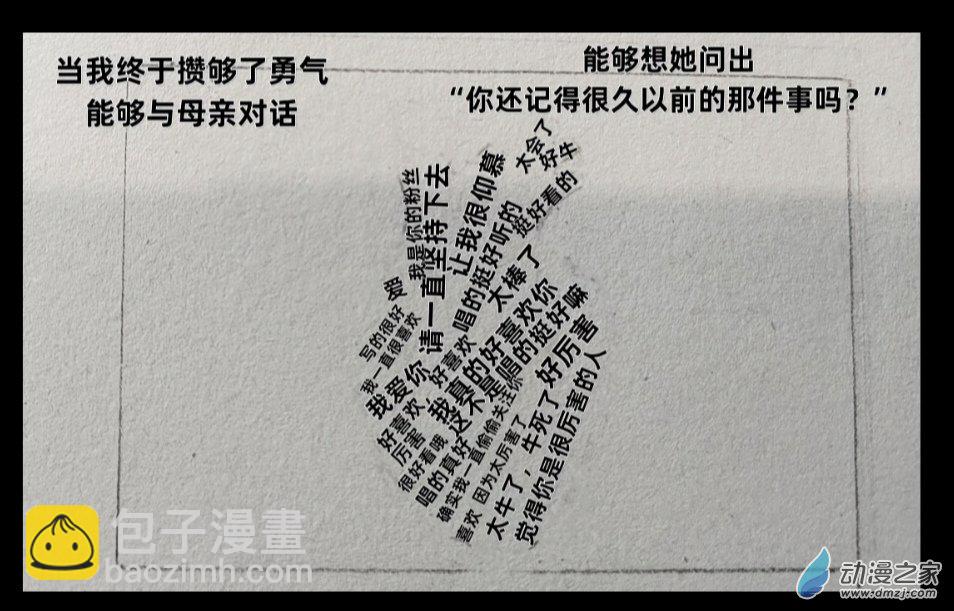 当我终于攒够了勇气
能够与母亲对话
能够想她问出
“你还记得很久以前的那件事吗？”
太会了
好牛
我是你的粉丝
请一直坚持下去
让我很仰慕
挺好看的
唱的挺好听的
太棒了
爱
写的很好
我一直很喜欢
我爱你
好喜欢，好喜欢
我真的好喜欢你
这不是唱的挺好嘛
厉害
很好看哦
唱的真好
确实我一直偷偷关注你
喜欢 因为太厉害了
太牛了，牛死了
好厉害
觉得你是很厉害的人
包子漫畫
baozimh.com
动漫之家
www.dmzj.com